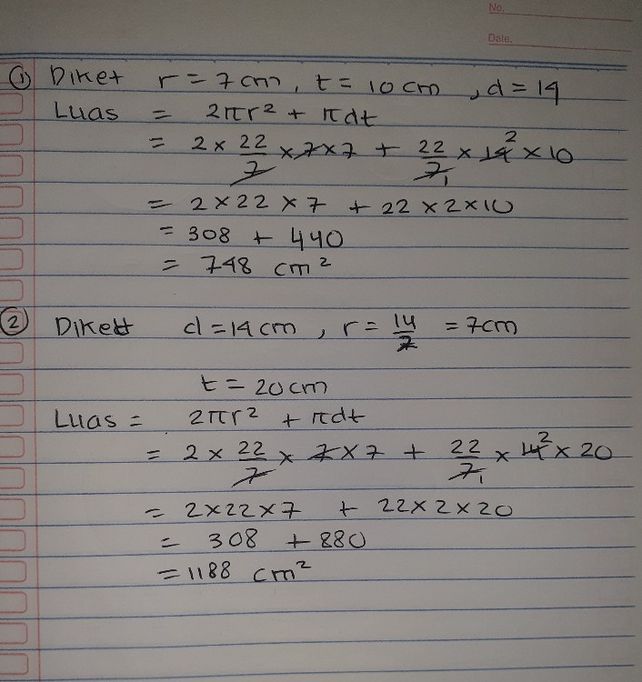 No.
Date.
① Diket r = 7 cm, t = 10 cm, d = 14
Luas = 2πr² + πdt
= 2 × 22/7 × 7 × 7 + 22/7 1 × 14 2 × 10
= 2 × 22 × 7 + 22 × 2 × 10
= 308 + 440
= 748 cm²
② Diket d = 14 cm, r = 14/2 = 7 cm
t = 20 cm
Luas = 2πr² + πdt
= 2 × 22/7 × 7 × 7 + 22/7 1 × 14 2 × 20
= 2 × 22 × 7 + 22 × 2 × 20
= 308 + 880
= 1188 cm²